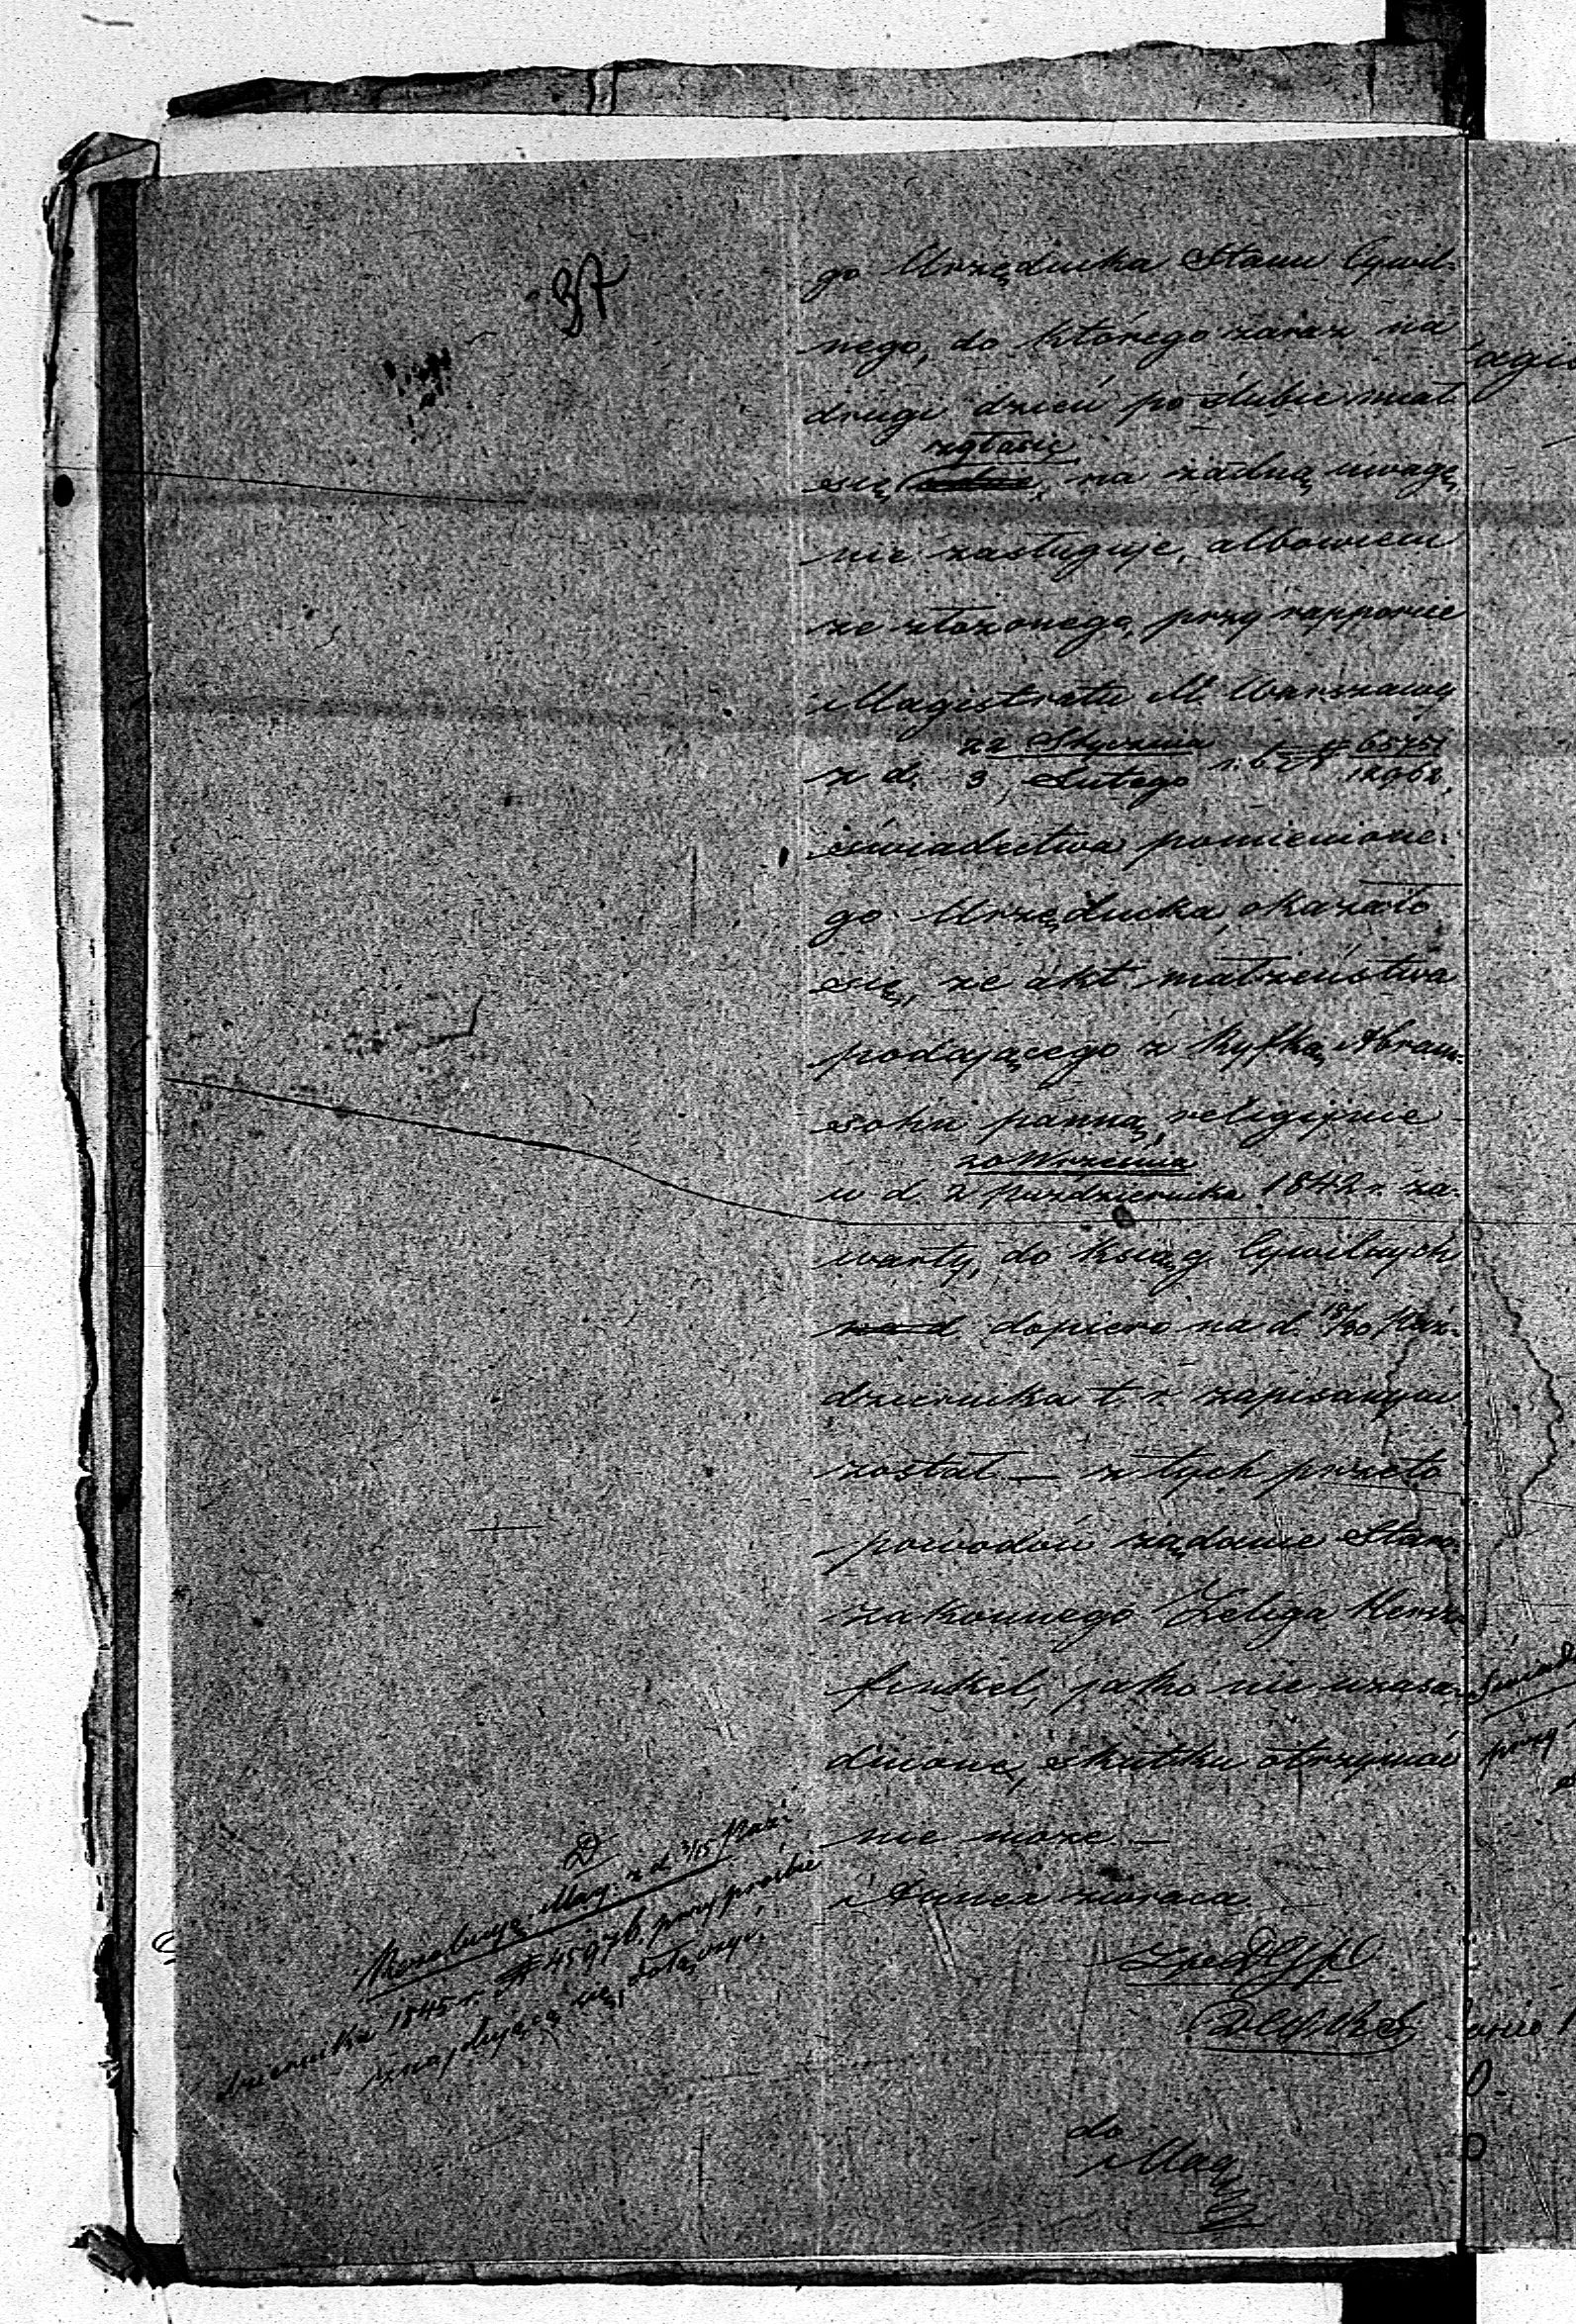 37
go Urzędnika Stanu Cywil-
nego, do którego zaraz na
drugi dzień po ślubie miał
zgłosić
się, na żadną uwagę
nie zasługuje, albowiem
ze złożonego, przy rapporcie
Magistratu M. Warszawy
z d. 22 Stycznia / 3 Lutego r. b. № 65751 / 12962
świadectwa pomienione-
go Urzędnika, okazało
się, że akt małżeństwa
podającego z Ryfką Abram-
sohn panną, religijnie
20 Września
w d. 2 Października 1842 r. za-
warty, do Ksiąg Cywilnych
dopiero na d. 18/30 Paź-
dziernika t. r. zapisanym
został — z tych przeto
powodów żądanie Staro-
zakonnego Zeliga
finkel, jako nie uzasa-
dnione, skutku otrzymać
nie może —
i zwraca
D
Rezolucyę Mag. z d. 3/15 Paź-
dziernika 1845 r. № 45976, przy prośbie
znajdującą się, dołączyć,
do
Mag